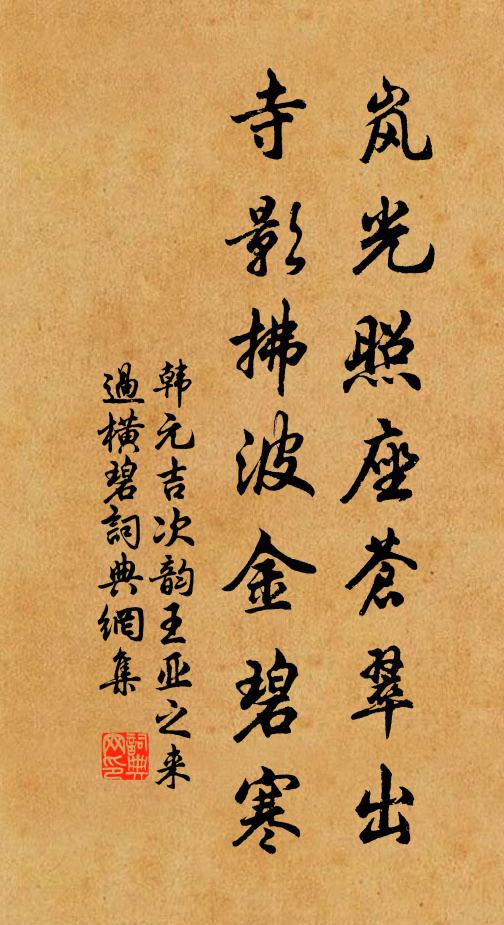 岚光照座苍翠出
寺影拂波金碧寒
韩元吉次韵王亚之来
過橫碧詞典網集
詞典網印